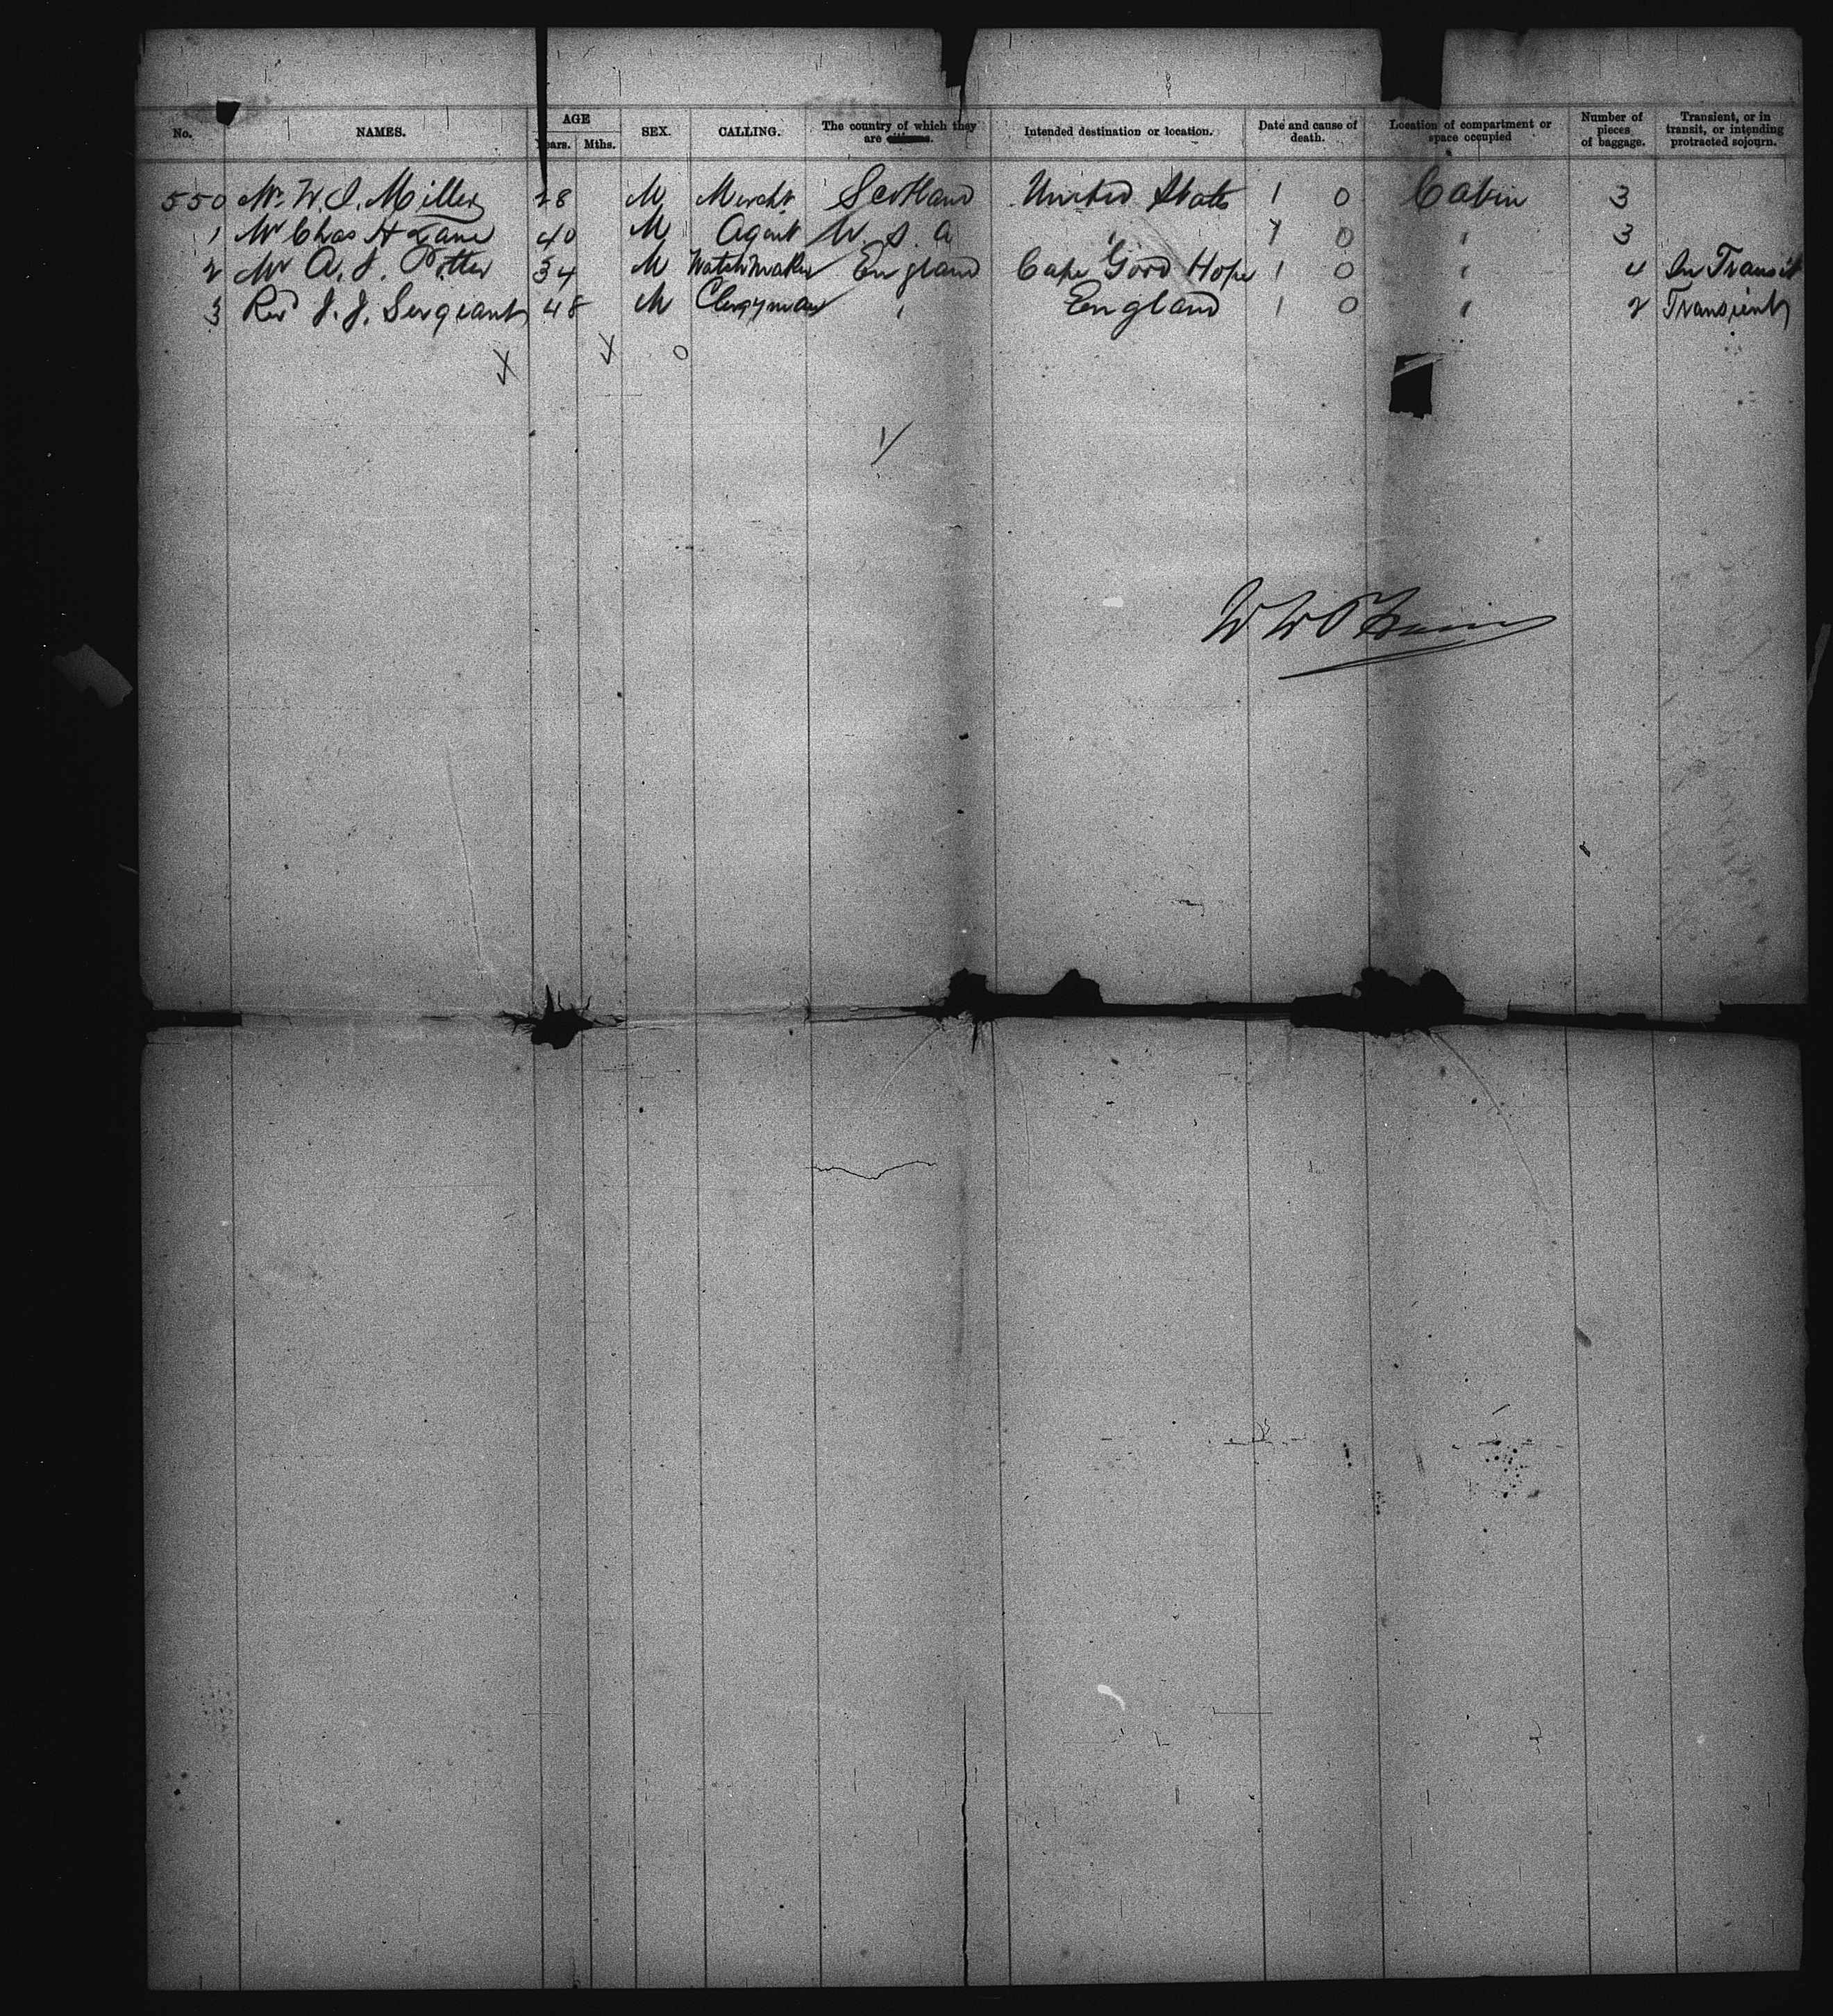 No. NAMES. AGE Years. Mths. SEX. CALLING. The country of which they are citizens. Intended destination or location. Date and cause of death. Location of compartment or space occupied Number of pieces of baggage. Transient, or in transit, or intending protracted sojourn.
550 Mr W. J. Miller 28 M Mercht Scotland United States 1 0 Cabin 3
1 Mr Chas H Lane 40 M Agent U. S. A " 1 0 " 3
2 Mr A. J. Potter 34 M Watchmaker England Cape Good Hope 1 0 " 4 In Transit
3 Rev J. J. Sergeant 48 M Clergyman " England 1 0 " 2 Transient